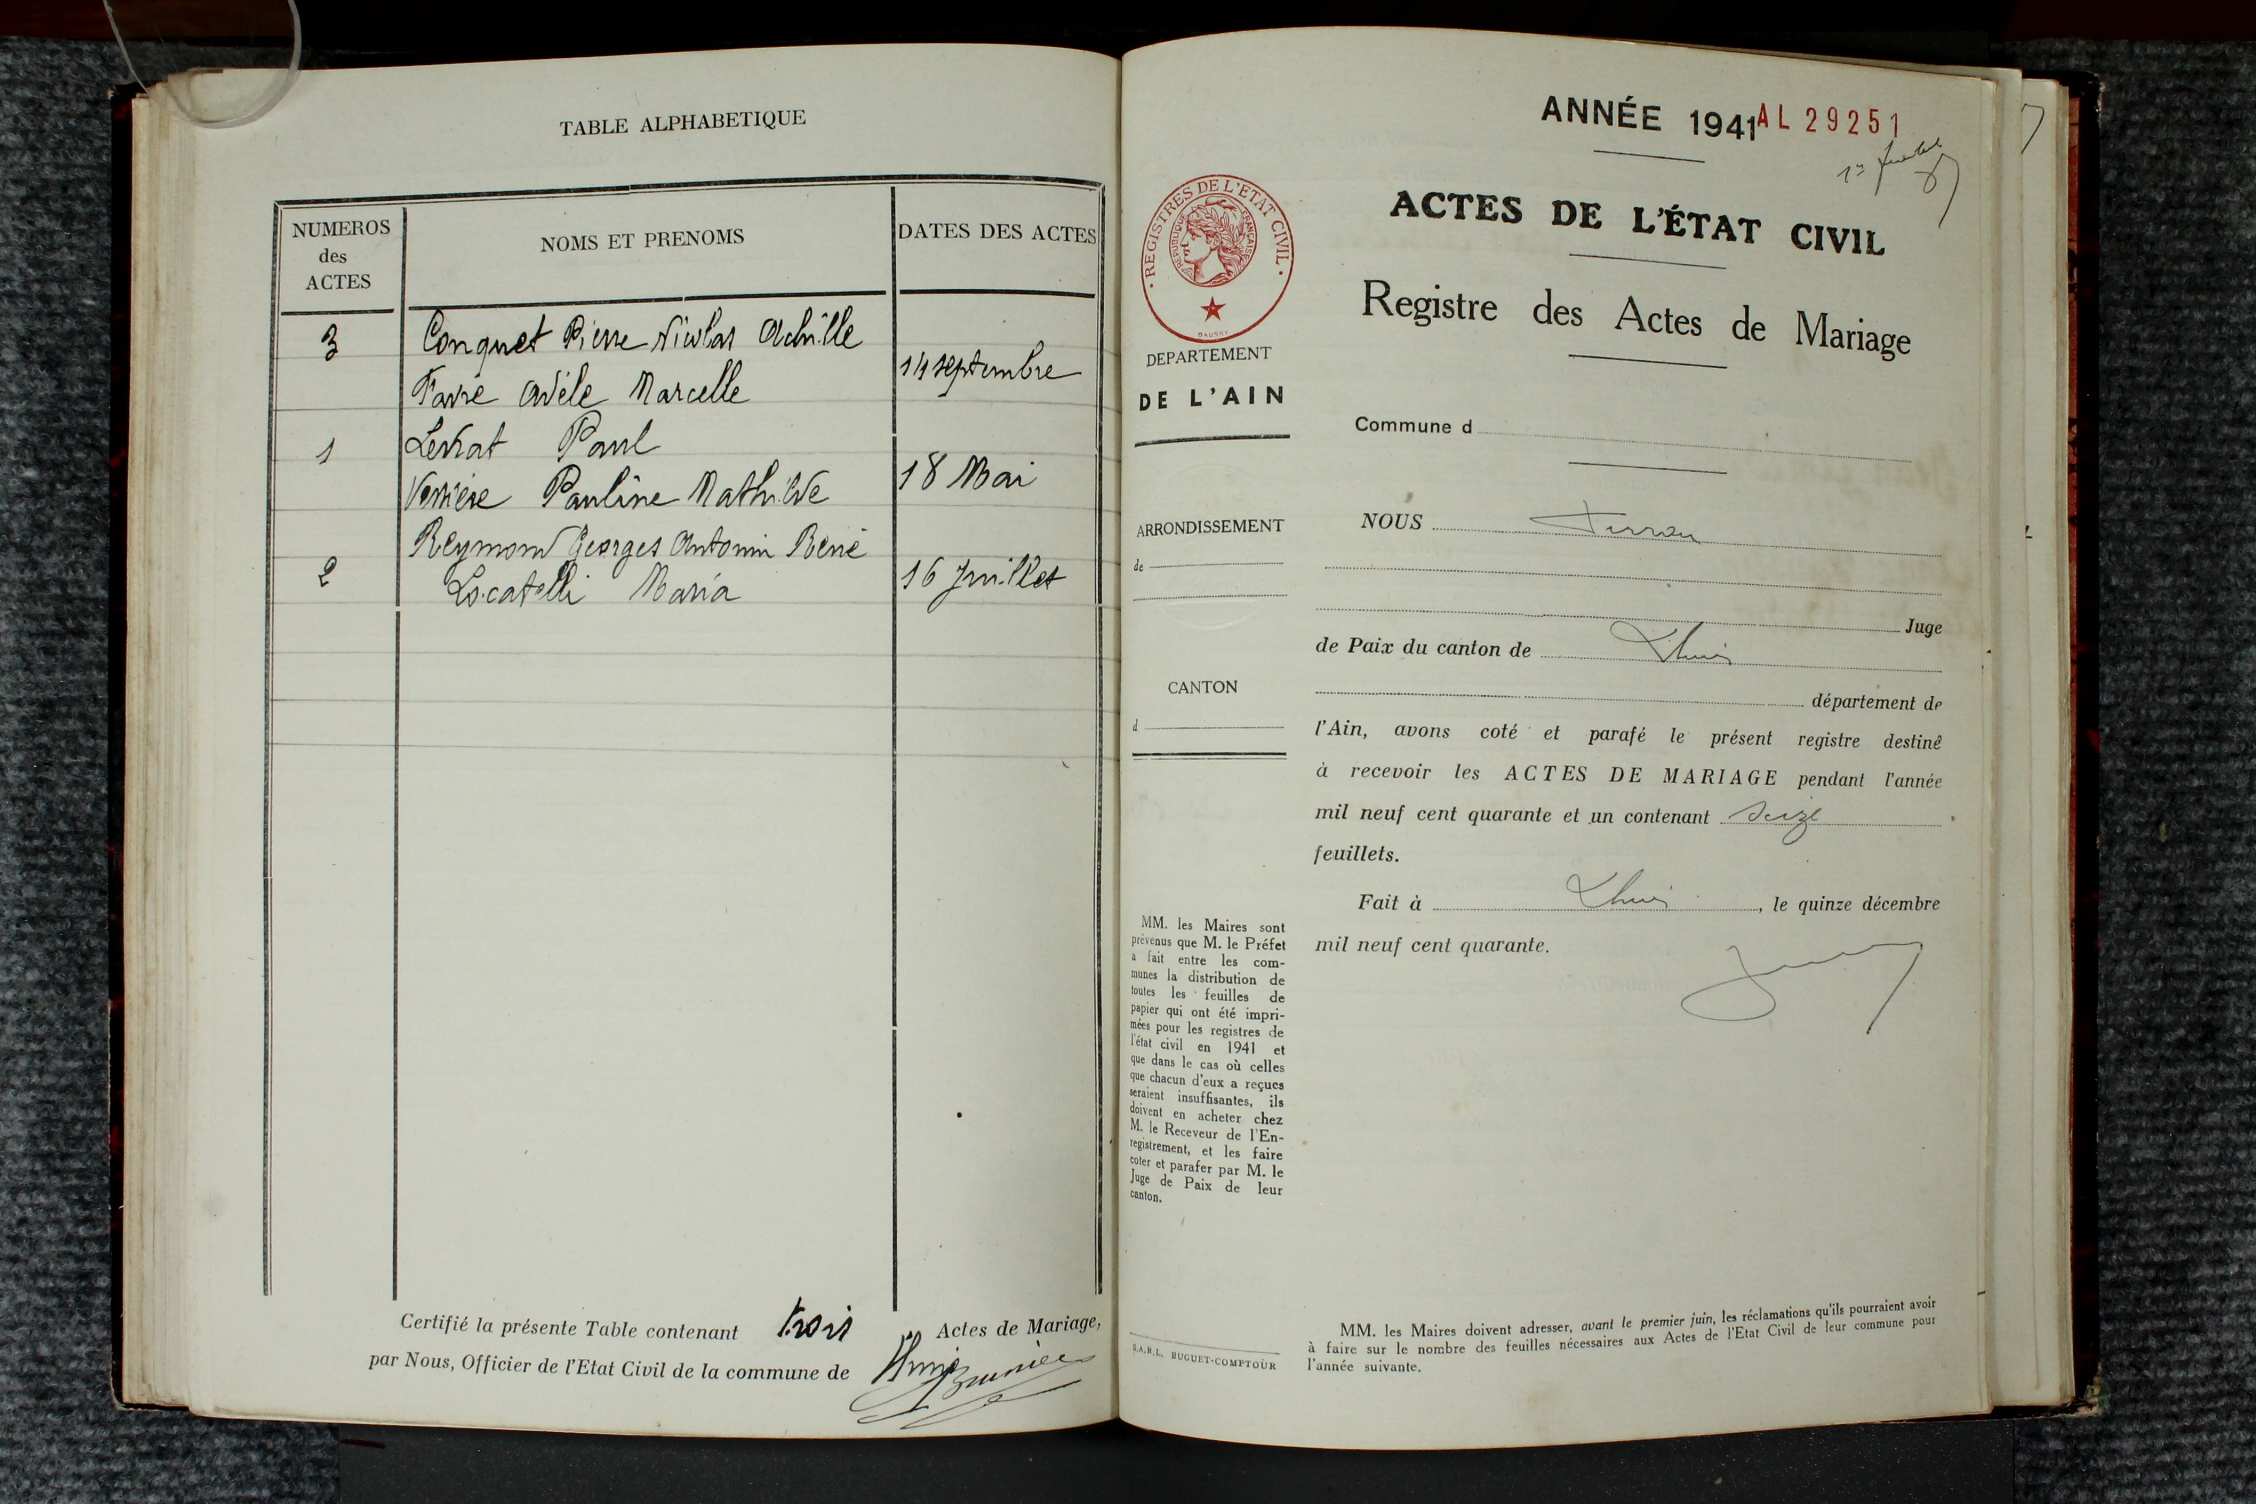 TABLE ALPHABETIQUE
NUMEROS
des
ACTES
NOMS ET PRENOMS
DATES DES ACTES
3
Conquet Pierre Nicolas Achille
Favre Adèle Marcelle
14 septembre
1
Levrat Paul
Verrière Pauline Mathilde
18 Mai
2
Reymond Georges Antonin René
Locatelli Maria
16 Juillet
Certifié la présente Table contenant trois Actes de Mariage,
par Nous, Officier de l'Etat Civil de la commune de Lhuis
ANNÉE 1941
AL 29251
ACTES DE L'ÉTAT CIVIL
Registre des Actes de Mariage
· REGISTRES DE L'ETAT CIVIL ·
REPUBLIQUE FRANÇAISE
DEPARTEMENT
DE L'AIN
ARRONDISSEMENT
de
CANTON
d
MM. les Maires sont
prévenus que M. le Préfet
a fait entre les com-
munes la distribution de
toutes les feuilles de
papier qui ont été impri-
mées pour les registres de
l'état civil en 1941 et
que dans le cas où celles
que chacun d'eux a reçues
seraient insuffisantes, ils
doivent en acheter chez
M. le Receveur de l'En-
registrement, et les faire
coter et parafer par M. le
Juge de Paix de leur
canton.
S.A.R.L. BUGUET-COMPTOUR
Commune d
NOUS
Juge
de Paix du canton de Lhuis
département de
l'Ain, avons coté et parafé le présent registre destiné
à recevoir les ACTES DE MARIAGE pendant l'année
mil neuf cent quarante et un contenant seize
feuillets.
Fait à Lhuis, le quinze décembre
mil neuf cent quarante.
MM. les Maires doivent adresser, avant le premier juin, les réclamations qu'ils pourraient avoir
à faire sur le nombre des feuilles nécessaires aux Actes de l'Etat Civil de leur commune pour
l'année suivante.